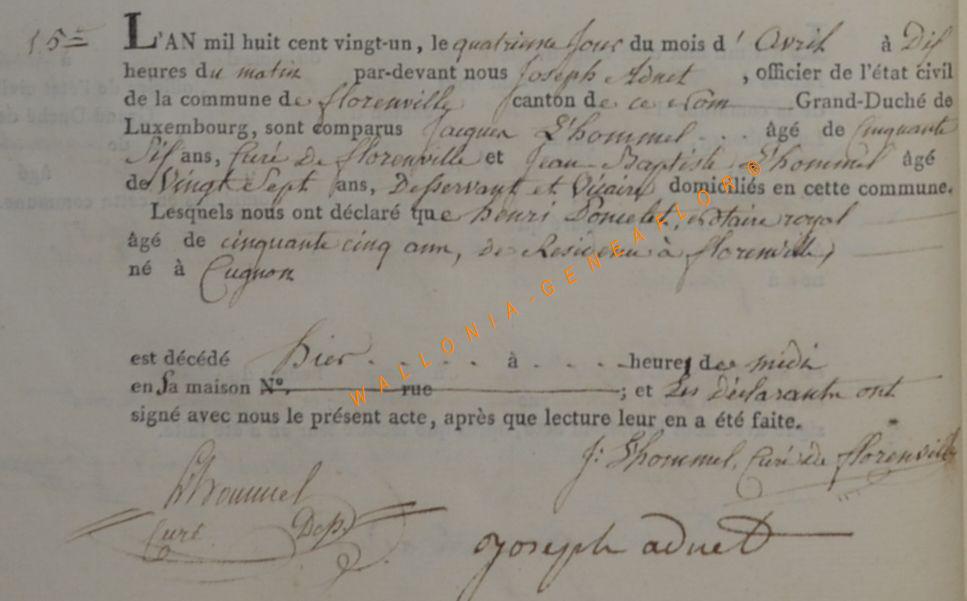 15e
L'AN mil huit cent vingt-un, le quatrieme Jour du mois d' Avril à Dix
heures du matin par-devant nous Joseph Adnet, officier de l'état civil
de la commune de florenville canton de ce nom Grand-Duché de
Luxembourg, sont comparus Jacques L'hommel . . . âgé de Cinquante
Six ans, Curé De florenville et Jean-Baptiste L'hommel âgé
de Vingt Sept ans, Desservant et Vicaire domiciliés en cette commune.
Lesquels nous ont déclaré que henri Poncelet, Notaire royal
âgé de cinquante cinq ans, de Residence à florenville,
né à Cugnon
est décédé hier . . . . . à . . . . heures de midi
en Sa maison N°. rue ; et Les déclarants ont
signé avec nous le présent acte, après que lecture leur en a été faite.
J: L'hommel, Curé de florenville
L'hommel
Curé
Joseph adnet
WALLONIA-GENEAFLOR©